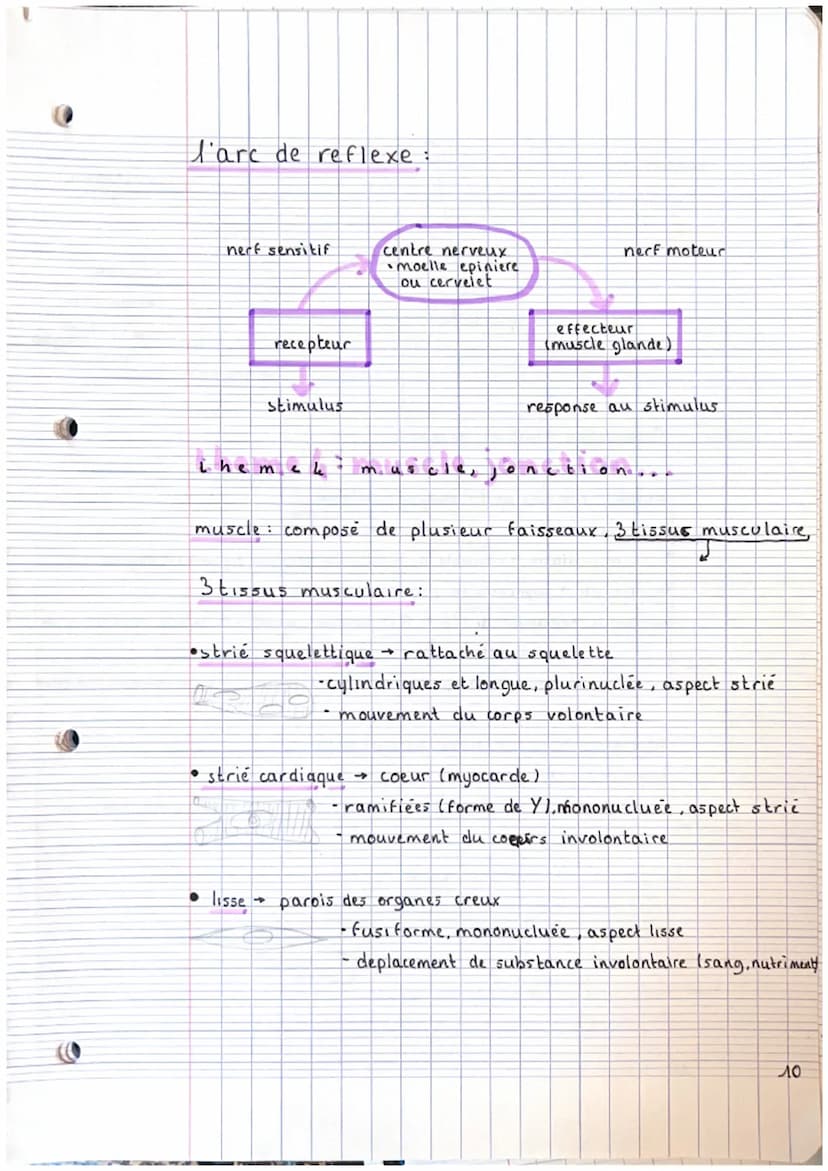 l'arc de reflexe :
nerf sensitif
centre nerveux
• moelle epiniere
ou cervelet
nerf moteur
recepteur
effecteur
(muscle glande)
stimulus
response au stimulus
theme 4 : muscle, jonction...
muscle : composé de plusieur faisseaux, 3 tissus musculaire,
3 tissus musculaire :
• strié squelettique → rattaché au squelette
- cylindriques et longue, plurinuclée, aspect strié
- mouvement du corps volontaire
• strié cardiaque → coeur (myocarde)
- ramifiées (forme de Y), mononucluée, aspect strié
- mouvement du involontaire
• lisse → parois des organes creux
- fusiforme, mononucluée, aspect lisse
- deplacement de substance involontaire (sang, nutriment)
10